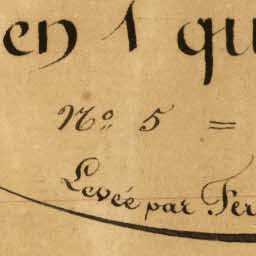 en 1 qu
No. 5 =
Levée par Fer